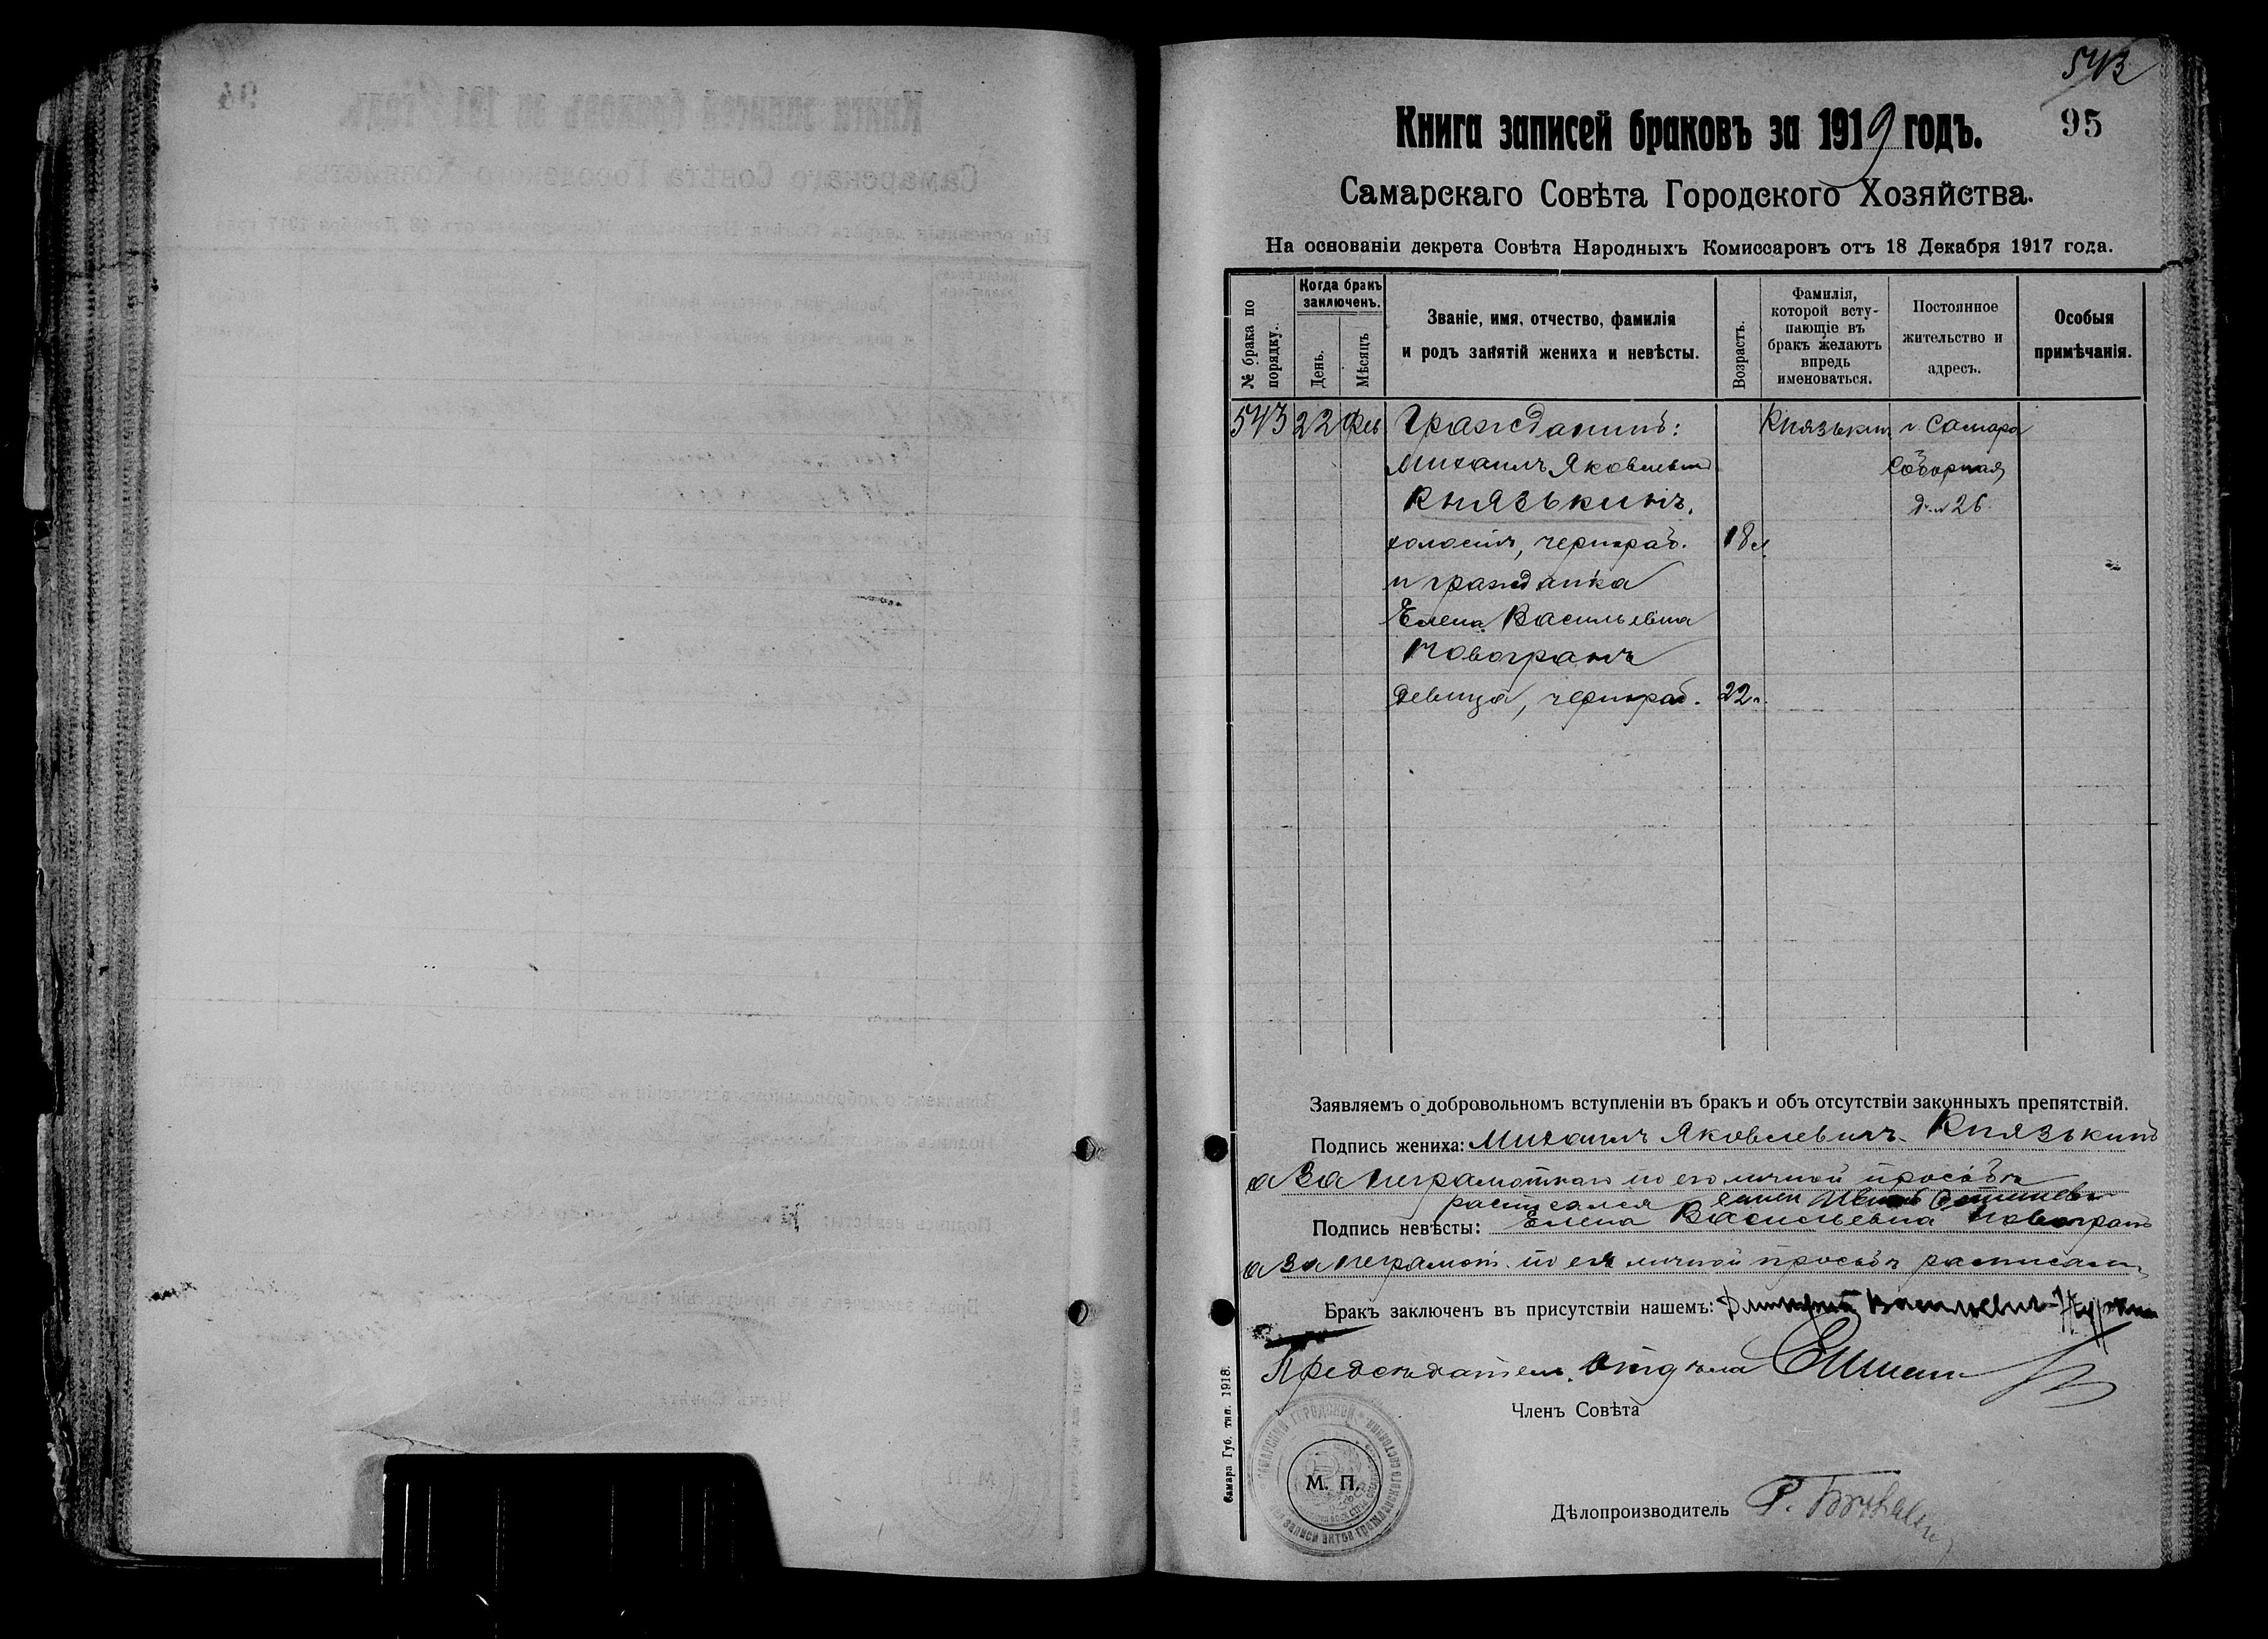 543
95
Книга записей браковъ за 1919 годъ.
Самарскаго Совѣта Городского Хозяйства.
На основаніи декрета Совѣта Народныхъ Комиссаровъ отъ 18 Декабря 1917 года.
№ брака по порядку.
Когда бракъ заключенъ.
День.
Мѣсяцъ
Званіе, имя, отчество, фамилія
и родъ занятій жениха и невѣсты.
Возрастъ.
Фамилія, которой вступающіе въ бракъ желаютъ впредь именоваться.
Постоянное жительство и адресъ.
Особыя примѣчанія.
543 22 Фев Гражданинъ: Князькин г. Самара
Михаилъ Яковлевич Соборная
Князькинъ, д. № 26.
холостъ, чернораб. 18 л.
и гражданка
Елена Васильевна
Новогранъ
девица, чернораб. 22 л.
Заявляемъ о добровольномъ вступленіи въ бракъ и объ отсутствіи законныхъ препятствій.
Подпись жениха: Михаилъ Яковлевичъ Князькинъ
а за неграмотнаго по его личной просьбѣ
расписался
Подпись невѣсты: Елена Васильевна Новогранъ
а за неграмот. по ея личной просьбѣ расписался
Бракъ заключенъ въ присутствіи нашемъ: Дмитрий Васильевич
Предсѣдатель Отдѣла
Членъ Совѣта
М. П.
Дѣлопроизводитель
Самара Губ. тип. 1918.